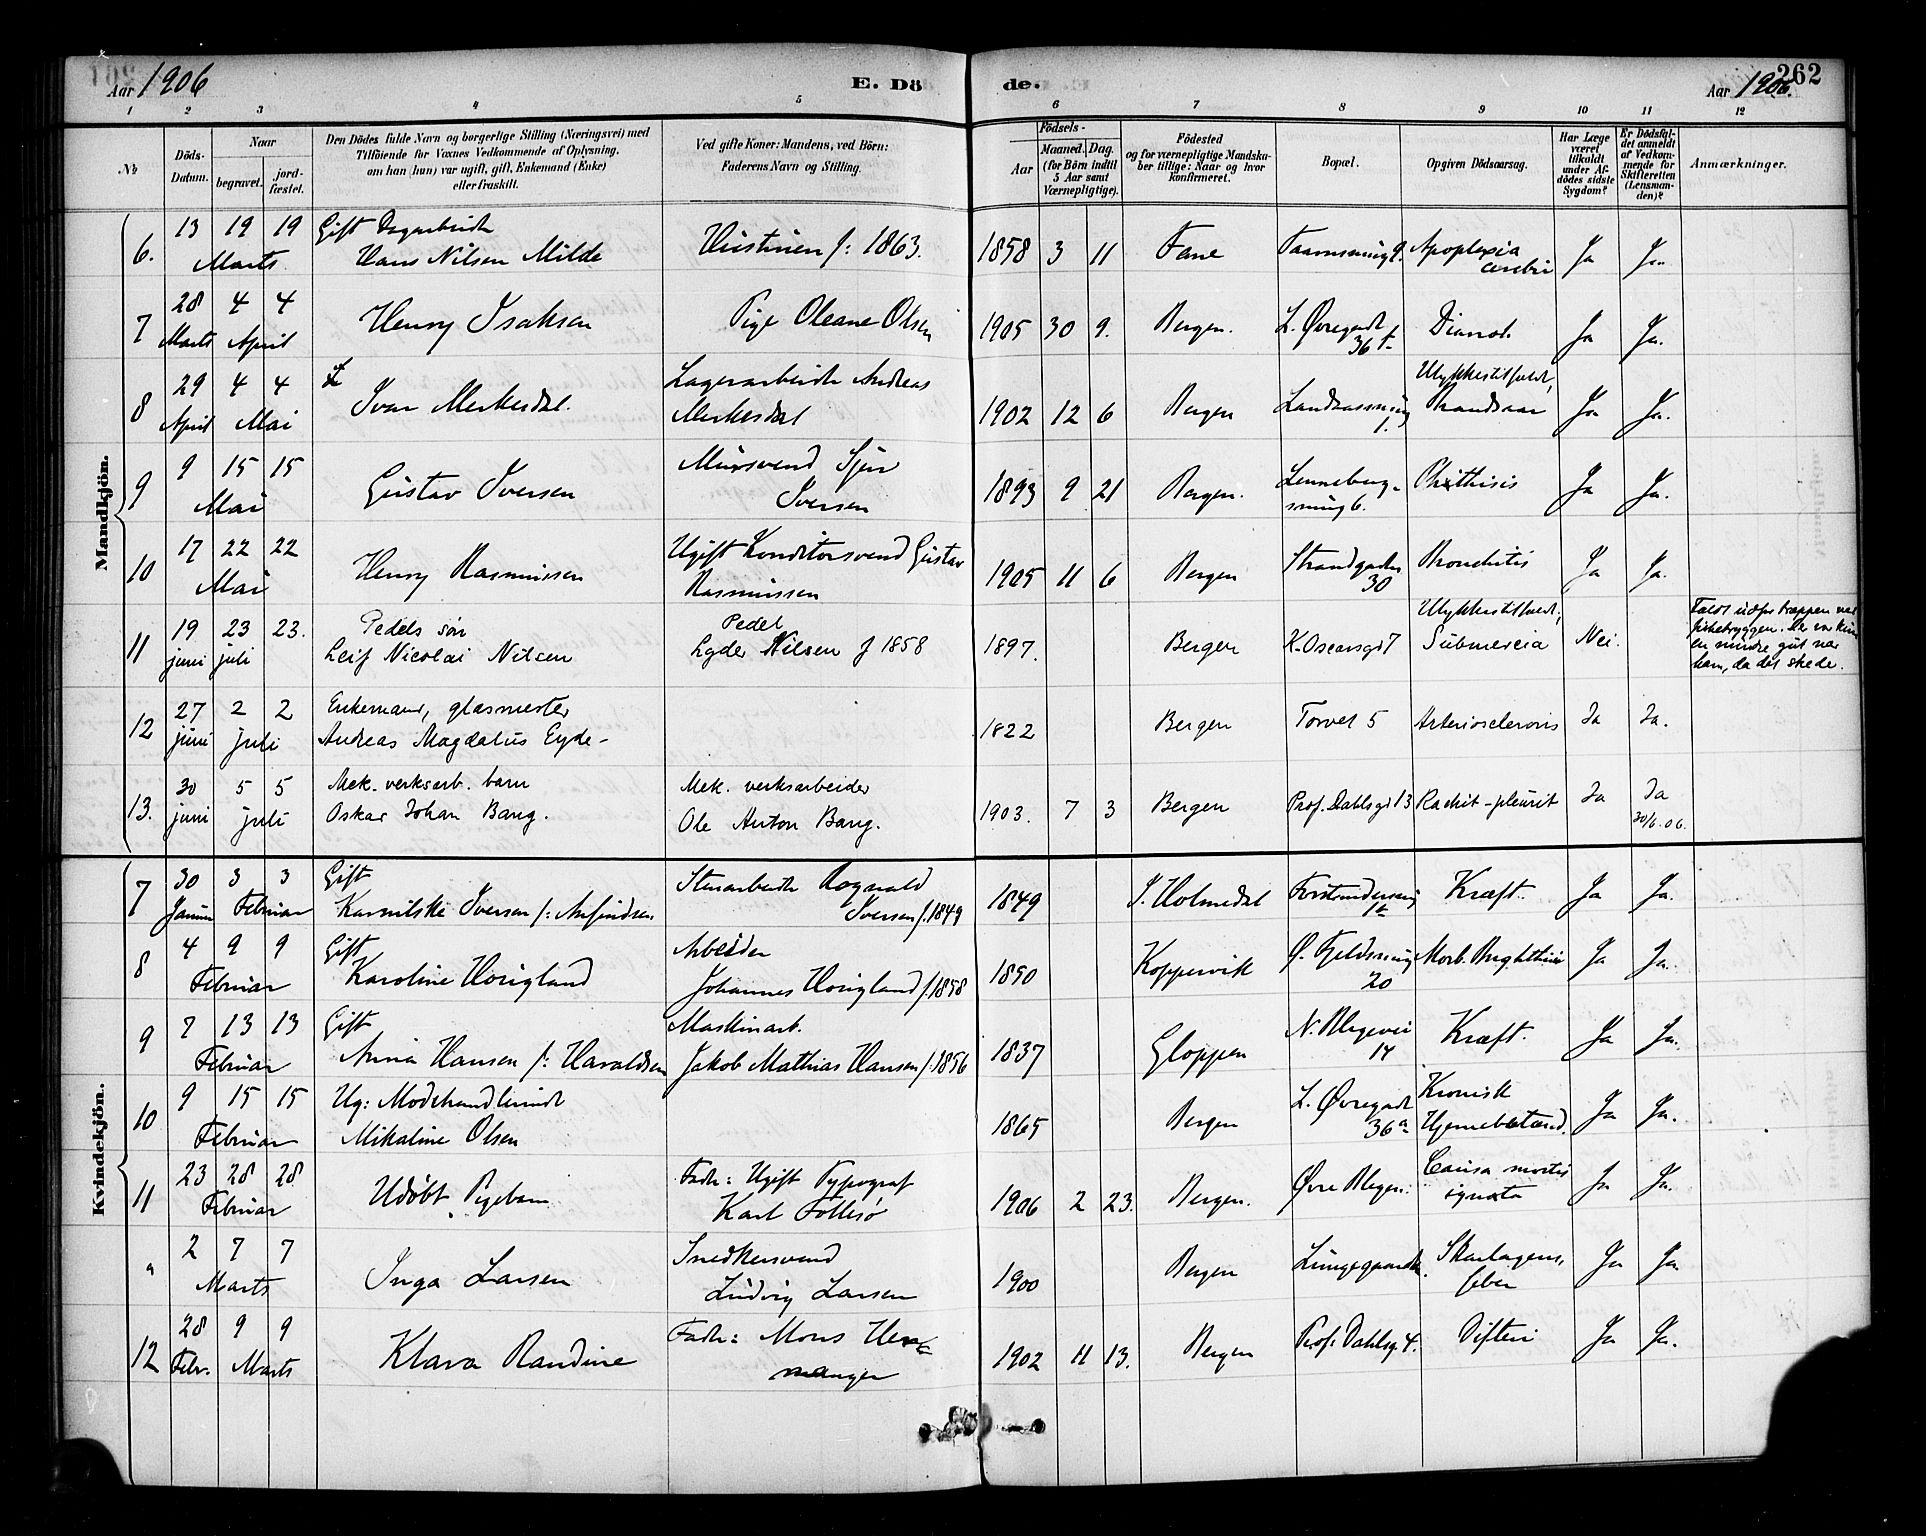 Aar 1906
E. Dö
de.
Aar 1906.
262
1 2 3 4 5 6 7 8 9 10 11 12
No
Döds-Datum.
Naar
begravet.
jord-fæstet.
Den Dödes fulde Navn og borgerlige Stilling (Næringsvei) med
Tilföiende for Voxnes Vedkommende af Oplysning,
om han (hun) var ugift, gift, Enkemand (Enke)
eller fraskilt.
Ved gifte Koner: Mandens, ved Börn:
Faderens Navn og Stilling.
Födsels-
Aar
Maaned. Dag.
(for Börn indtil
5 Aar samt
Værnepligtige).
Födested
og for værnepligtige Mandska-
ber tillige: Naar og hvor
konfirmeret.
Bopæl.
Opgiven Dödsaarsag.
Har Læge
været
tilkaldt
under Af-
dödes sidste
Sygdom?
Er Dödsfal-
det anmeldt
af Vedkom-
mende for
Skifteretten
(Lensman-
den)?
Anmærkninger.
Mandkjön.
6. 13 19 19 Marts Gift Dagarbeider
Hans Nilsen Milde
Hustruen f: 1863.
1858 3 11 Fane Apoplexia
cerebri Ja Ja.
7 28 Marts 4 4 April Henry Isaksen
Pige Oleane Olsen
1905 30 9. Bergen. L. Øvregadt
36 Ja Ja.
8 29 April 4 4 Mai Ivar Merkesdal.
Lagerarbeider Andreas
Merkesdal
1902 12 6 Bergen 1. Ulykkestilfældt,
Brandsaar Ja Ja.
9 9 15 15 Mai Gustav Iversen
Mursvend Sjur
Iversen
1893 9 21 Bergen. Lennebergs-
smug 6. Phthisis Ja Ja.
10 17 22 22 Mai Henry Rasmussen
Ugift Konditorsvend Gustav
Rasmussen
1905 11 6 Bergen Strandgaden
30 Bronchitis Ja Ja.
11 19 juni 23 23. juli Pedels søn
Leif Nicolai Nilsen
Pedel
Lyder Nilsen f 1858
1897. Bergen K. Oscarsgd 7 Ulykkestilfældt,
Submercia Nei.
Faldt udfor trappen ved
fiskebryggen. Der var kun
en mindre gut nær
ham, da det skede.
12 27 juni 2 2 juli Enkemand, glasmester
Andreas Magdalus Eyde-
1822 Bergen Torvet 5 Arteriosclerosis Ja Ja.
13. 30 juni 5 5 juli Mek. verksarb. barn
Oskar Johan Bang.
Mek. verksarbeider
Ole Anton Bang.
1903. 7 3 Bergen Prof. Dahlsgd 13 Rachit-pleurit Ja Ja
30/6.06.
Kvindekjön.
7 30 Januar 3 3 Februar Gift
Iversen f: Anfindsen
Stenarbeider Rognald
Iversen f. 1849
1849 S. Holmedal Kræft. Ja Ja.
8 4 9 9 Februar Gift
Karoline Horigland
Arbeider
Johannes Horigland f. 1858
1850 Koppervik Ø. Fjeldsmug
20 Morb. Brighthii Ja Ja.
9 7 13 13 Februar Gift
Anna Hansen f: Haraldsen
Maskinarb.
Jakob Mathias Hansen f. 1856
1837 Gloppen N. Blegevei
14 Kræft. Ja Ja.
10 9 15 15 Februar Ug: Modehandlerinde
Mikaline Olsen
1865 Bergen L. Øvregadt
36a Kronisk
Hjernebetænd. Ja Ja.
11 23 28 28 Februar Udøbt Pigebarn
Fader: Ugift Typograf
Karl Follesø
1906 2 23. Bergen. Øvre Blegen. Causa mortis
ignota Ja Ja.
" 2 7 7 Marts Inga Larsen
Snedkersvend
Ludvig Larsen
1900 Bergen Lungegaarden Skarlagens,
feber Ja Ja.
12 28 Febr. 9 9 Marts Klara Randine
Fader: Mons Her
manger
1902 11 13. Bergen Prof. Dahlsg. 4. Difteri Ja Ja.